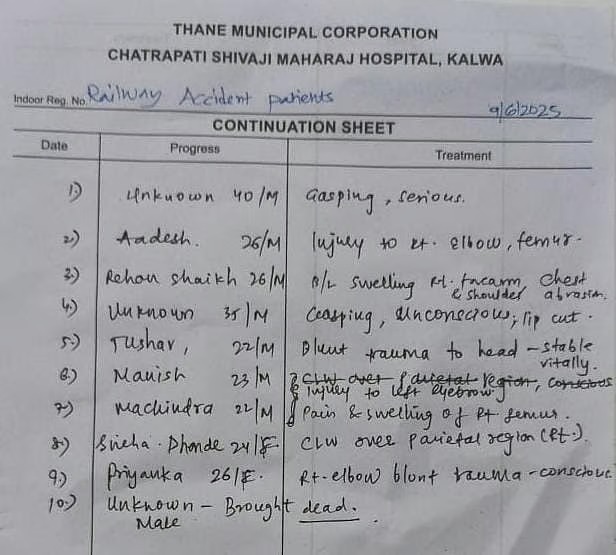 THANE MUNICIPAL CORPORATION
CHATRAPATI SHIVAJI MAHARAJ HOSPITAL, KALWA
Indoor Reg. No. Railway Accident patients
9/6/2025
CONTINUATION SHEET
Date Progress Treatment
1.) Unknown 40/M Gasping, serious.
2) Aadesh. 26/M Injury to Rt. Elbow, femur.
3.) Rehan shaikh 26/M B/L swelling Rt. forearm, chest
& shoulder abrasion.
4.) Unknown 35/M Gasping, Unconscious, lip cut.
5.) Tushar, 22/M Blunt trauma to head - stable
vitally.
6.) Manish 23/M CLW over parietal region, conscious
& injury to left eyebrow
7) Machindra 22/M Pain & swelling of Rt femur.
8) Sneha. Dhonde 24/F CLW over parietal region (Rt.).
9.) Priyanka 26/F. Rt-elbow blunt trauma - conscious
10.) Unknown - Brought dead.
Male